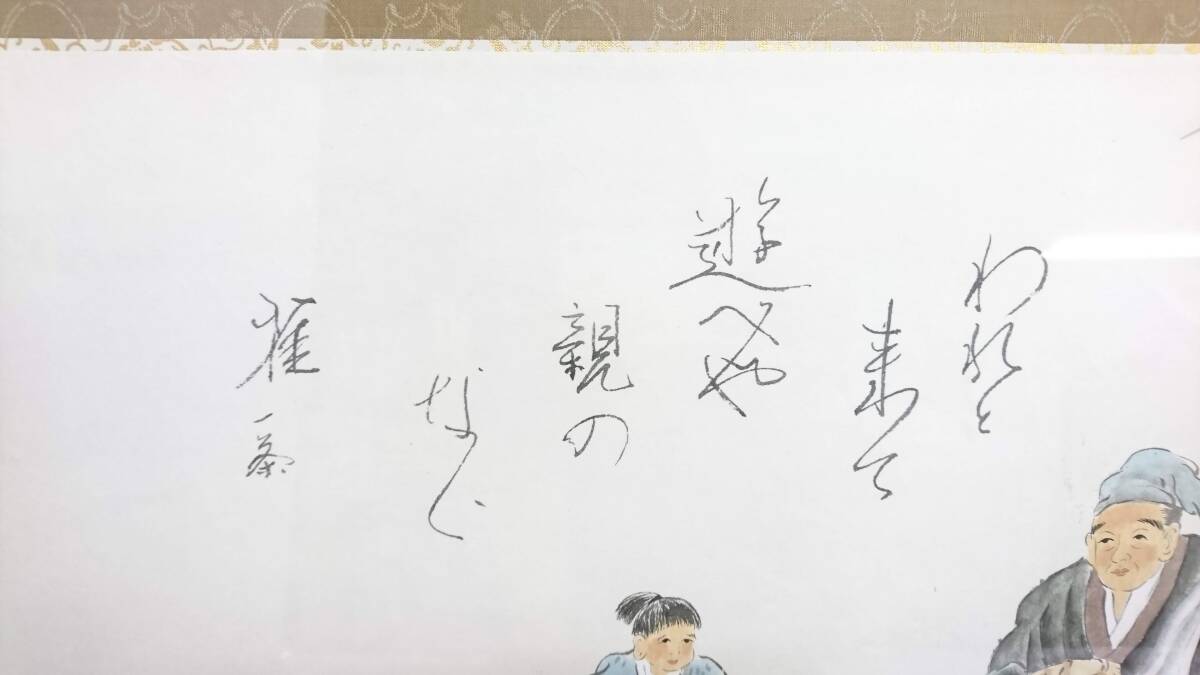 われと
来て
遊べや
親の
なし
雀
一茶